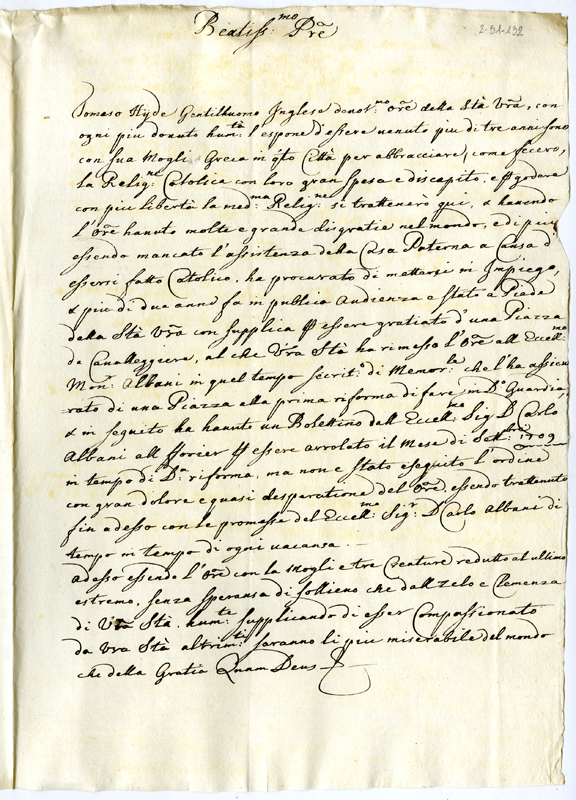 Beatiss:mo Pre
2-51-132
Tomaso Hyde Gentilhuomo Inglese devot:mo Ore della Stà Vra, con
ogni piu dovuto hum:tà l'espone d'essere venuto piu di tre anni sono
con sua Mogli Greca in qto Città per abbracciare, come fecero,
la Relig:ne Catolica con loro gran spesa e discapito, e p godere
con piu libertà la med:ma Relig:ne si trattenero qui, & havendo
l'Ore havuto molte e grande disgratie nel mondo, e di piu
essendo mancato l'assistenza della Casa Paterna a Causa d'
essersi fatto Catolico, ha procurato di mettersi in Impiego,
& piu di due anno fa in publica Audienza e stato a Piede
della Stà Vra con supplica p essere gratiato d'una Piazza
de Cavalleggiere, al che Vra Stà ha rimesso l'Ore all Eccell:mo
Mon:r Albani in quel tempo Secrit:o di Memor:le che l'ha assicu
rato di una Piazza alla prima riforma di fare in Da Guardia,
& in seguito ha havuto un Bolettino dall Eccell:mo Sig D Carlo
Albani all forier p essere arrolato il Mese di Sett:bre 1709
in tempo di Da riforma, ma non e stato eseguito l'ordine
con gran dolore e quasi desperatione del Ore, essendo trattenuto
fin adesso con le promesse del Eccell:mo Sig:r D Carlo Albani di
tempo in tempo di ogni vacansa.
Adesso essendo l'Ore con la mogli e tre Creature redutto al ultimo
estremo, senza speransa di sollievo che dall zelo e Clemenza
di Vra Stà hum:te supplicando di esser Compassionato
da Vra Stà altrim:ti saranno li piu miserabile del mondo
che della Gratia Quam Deus